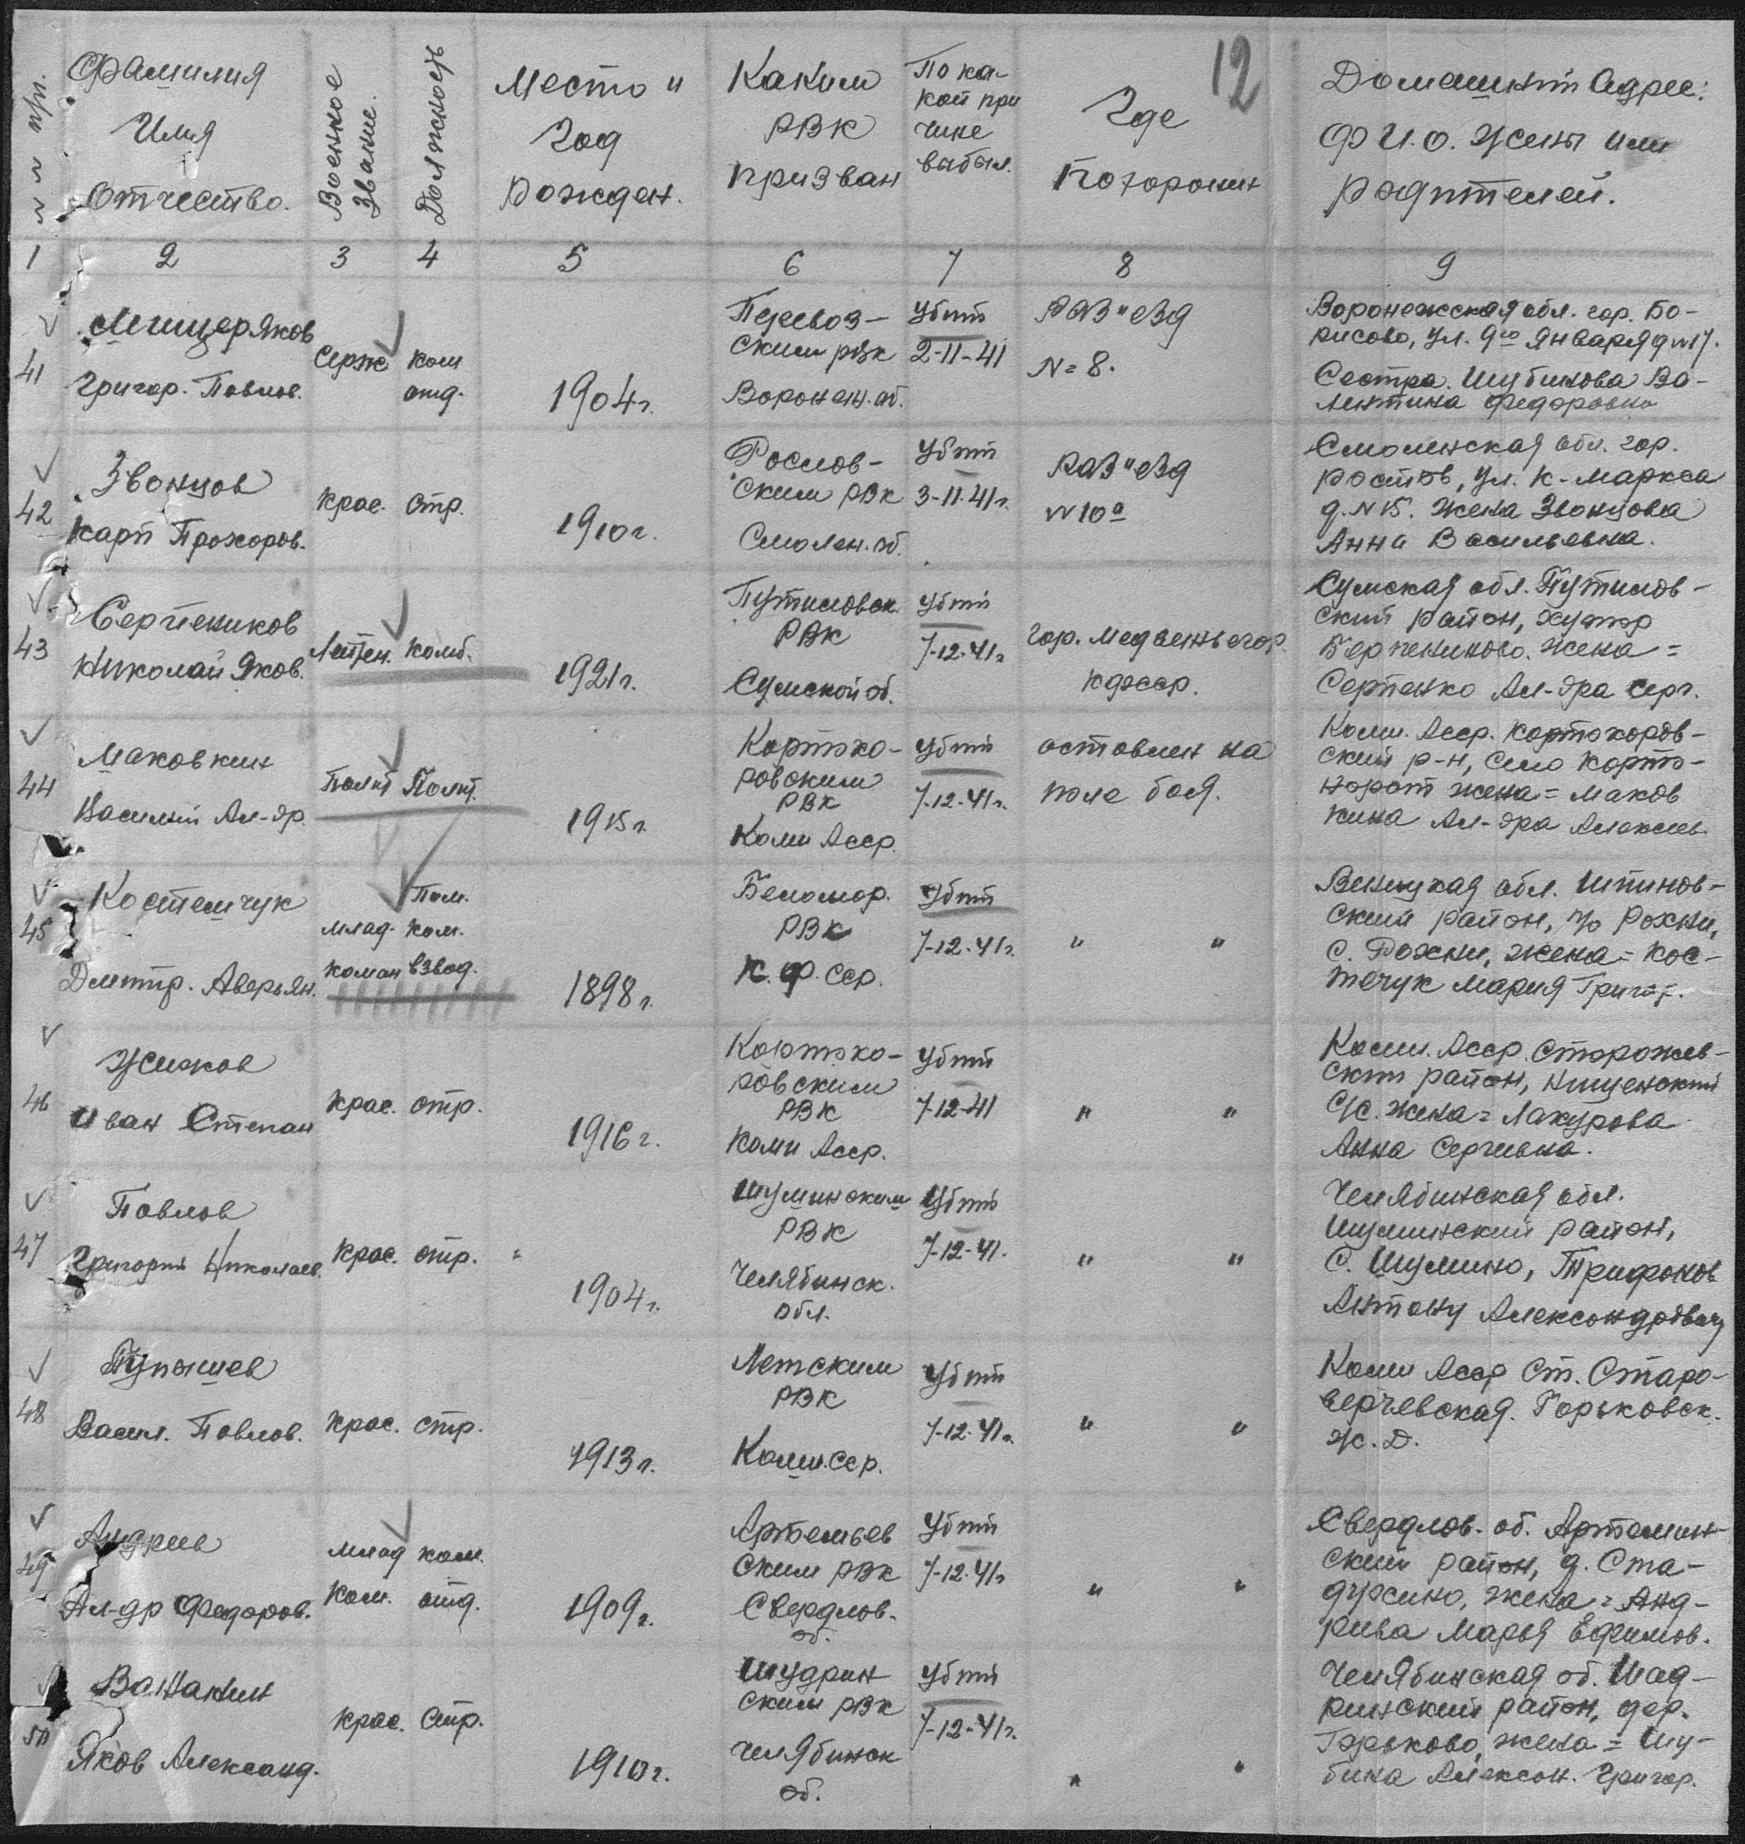 12
№№ п/п.
Фамилия
Имя
Отчество.
Военное
Звание.
Должность
Место и
Год
рожден.
Каким
РВК
призван
По ка-
кой при
чине
выбыл.
Где
Похоронен
Домашний Адрес:
Ф И.О. Жены или
родителей.
1 2 3 4 5 6 7 8 9
41
Мищеряков
Григор. Павлов.
Серж
Ком
отд.
1904г.
Перевоз-
ским рвк
Воронеж. об.
Убит
2-11-41
Раз"езд
N=8.
Воронежская обл. гор. Бо-
рисово, ул. 9го Января д N17.
Сестра. Шубинова Ва-
лентина Федоровна
42
Звонцов
Карп Прохоров.
Крас. Стр.
1910г.
Рослов-
ским РВК
Смолен. об.
Убит
3-11-41г.
Раз"езд
N10а
Смоленская обл. гор.
Ростов, ул. К-Маркса
д. N15. Жена Звонцова
Анна Васильевна.
43
Серпеников
Николай Яков.
Лейтен. Комб.
1921г.
Путиловск.
РВК
Сумской об.
Убит
7-12-41г
гор. Медвежьегор.
КФССР.
Сумская обл. Путилов-
ский район, хутор
жена =
Серпенко Ал-дра Серг.
44
Маковкин
Василий Ал-др.
Полит Полит.
1915г.
Корткo-
ровским
РВК
Коми Асср.
Убит
7-12-41г.
оставлен на
поле боя.
Коми. Асср. Корткоров-
ский р-н, село Корт-
жена = Маков
кина Ал-дра Алексеев.
45
Костемчук
Дмитр. Аверьян.
млад.
коман
Пом.
Ком.
взвод.
1898г.
Беломор.
РВК
К. Ф. ССР.
Убит
7-12-41г.
" "
Веницкая обл. Шпиков-
ский район, п/о Рохни,
с. Рохни, жена = Кос-
течук Мария Григор.
46
Жижов
Иван Степан
Крас. стр.
1916г.
Корткo-
ровским
РВК
Коми Асср.
Убит
7-12-41
" "
Коми. Асср. Сторожев-
ский район,
С/С. жена = Лакурова
Анна Сергеевна.
47
Павлов
Григорий Николаев.
Крас. стр.
1904г.
Шуминским
РВК
Челябинск.
обл.
Убит
7-12-41.
" "
Челябинская обл.
Шумимский район,
С. Шумино, Трифонов
Антону Александровичу
48
Тупышев
Васил. Павлов.
Крас. стр.
1913г.
Летским
РВК
Коми.ССР.
Убит
7-12-41г.
" "
Коми Асср Ст. Старо-
верчевская. Горьковск.
ж. Д.
49
Андриев
Ал-др Федоров.
млад
ком.
ком.
отд.
1909г.
Артемьев
ским РВК
Свердлов.
об.
Убит
7-12-41г
" "
Свердлов. об. Артемин-
ский район, д. Ста-
духсино, жена = Анд-
рива Марья Ефимов.
50
Ванакин
Яков Александ.
Крас. Стр.
1910г.
Шудрин
ским РВК
Челябинск
об.
Убит
7-12-41г.
" "
Челябинская об. Шад-
ринский район, дер.
Горьково, жена = Шу-
бина Алексан. Григор.